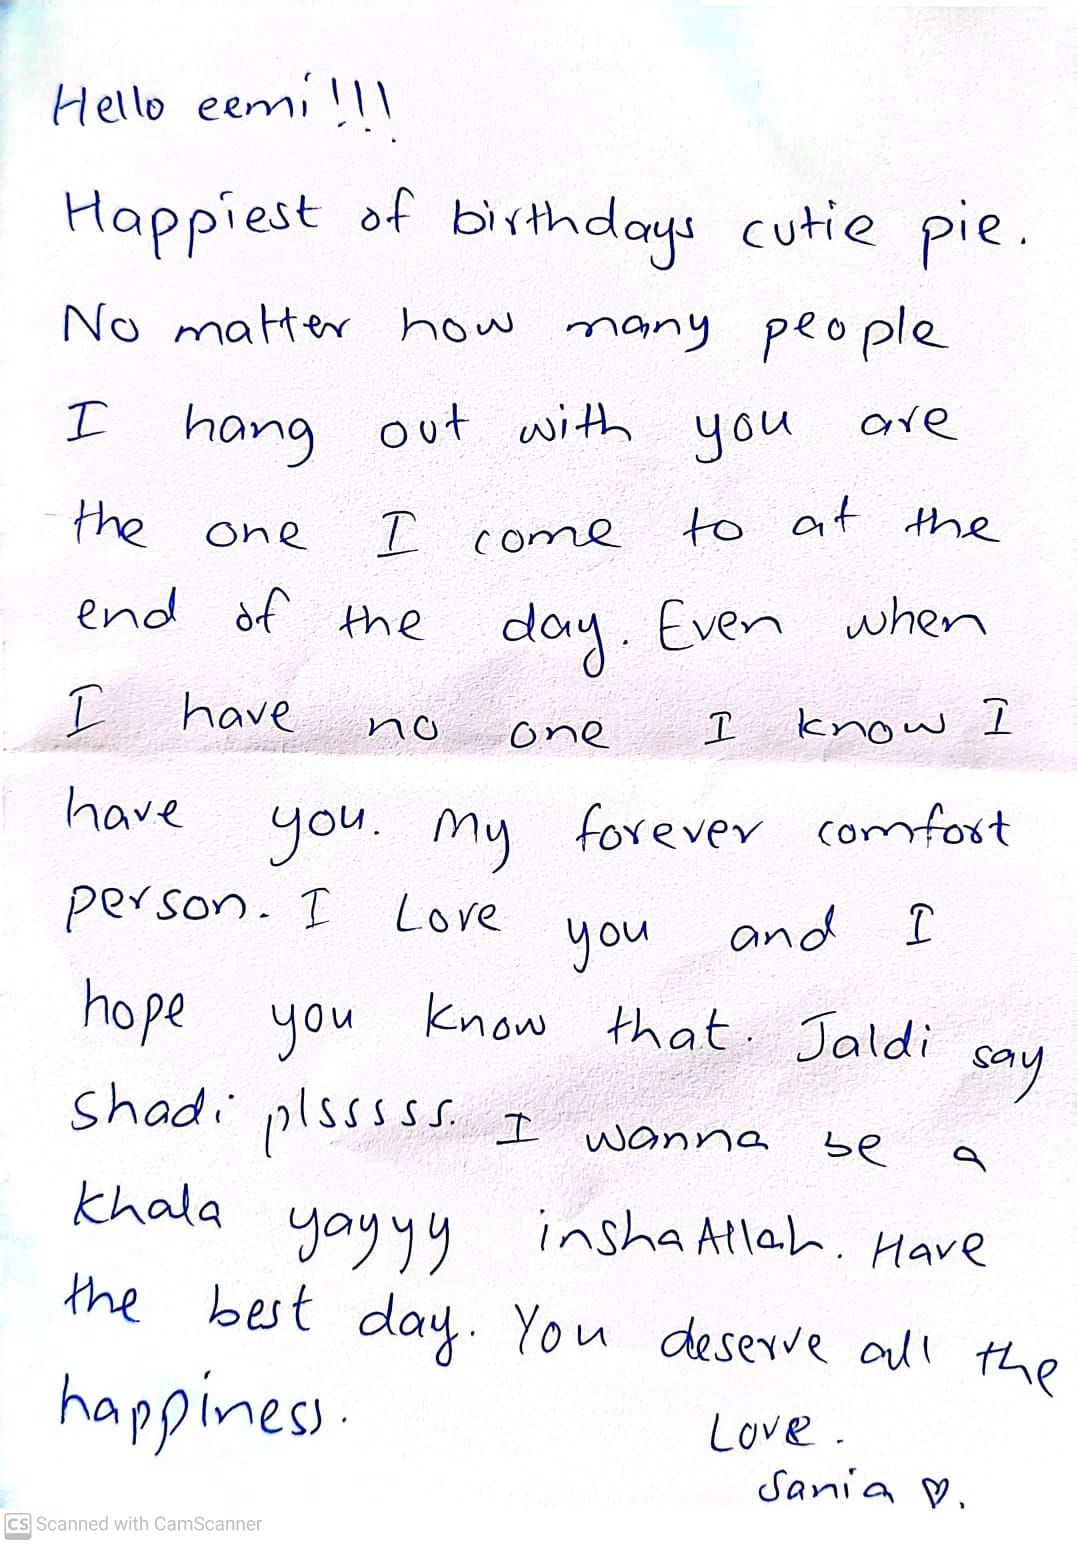 Hello eemi!!!
Happiest of birthdays cutie pie.
No matter how many people
I hang out with you are
the one I come to at the
end of the day. Even when
I have no one I know I
have you. My forever comfort
person. I Love you and I
hope you know that. Jaldi say
Shadi plsssss. I wanna be a
Khala yayyy inshaAllah. Have
the best day. You deserve all the
happiness.
Love.
Sania ♡.
CS Scanned with CamScanner